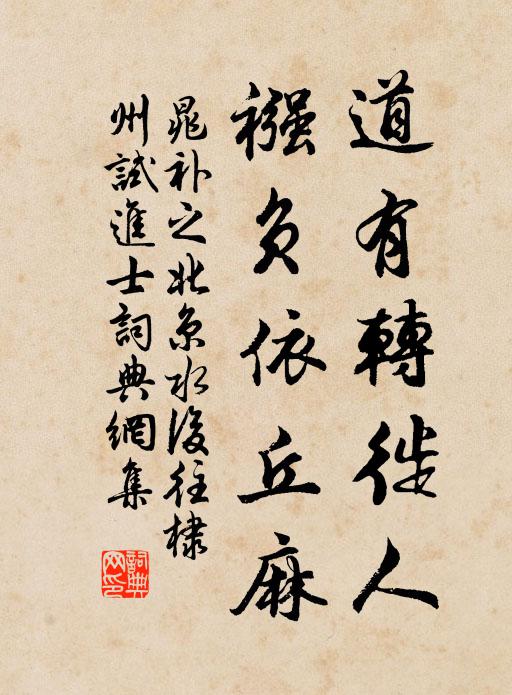 道有轉徙人
襁負依丘麻
晁补之北京水後往棣
州試進士詞典網集
詞典
网印